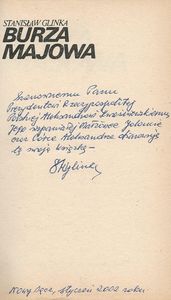 STANISŁAW GLINKA
BURZA
MAJOWA
Szanownemu Panu
Prezydentowi Rzeczypospolitej
Polskiej Aleksandrowi Kwaśniewskiemu,
Jego wspaniałej Małżonce Jolancie
oraz Córce Aleksandrze ofiaruję
tę moją książkę –
SGlinka
Nowy Sącz, styczeń 2002 roku